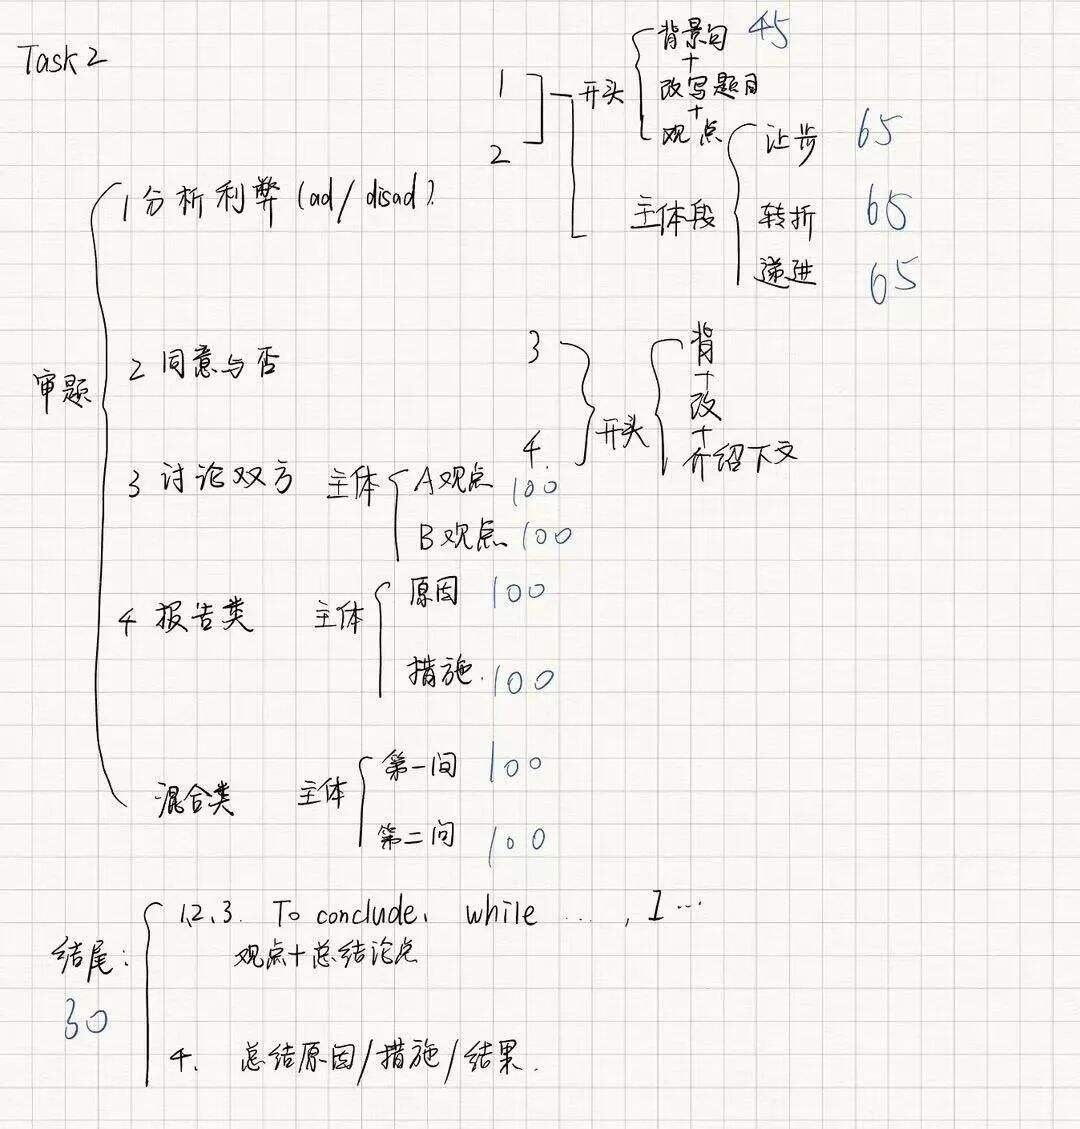 Task 2
1
2
开头
背景句 45
+
改写题目
+
观点
主体段
让步 65
转折 65
递进 65
审题
1 分析利弊 (ad/disad).
2 同意与否
3
4.
开头
背
+
改
+
介绍下文
3 讨论双方 主体
A观点 100
B观点 100
4 报告类 主体
原因 100
措施. 100
混合类 主体
第一问 100
第二问 100
结尾:
30
1,2,3. To conclude, while ... , I ...
观点+总结论点
4. 总结原因/措施/结果.